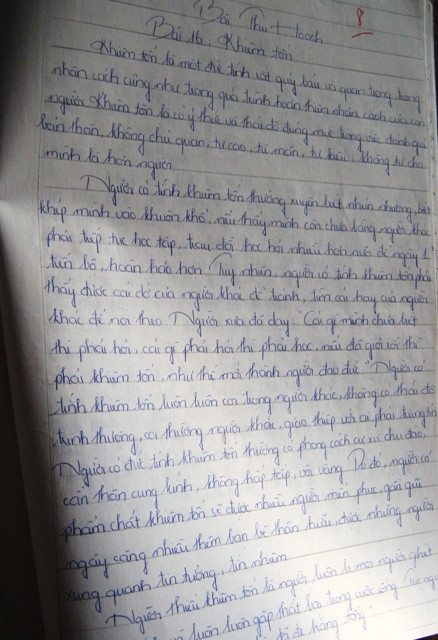 Bài Thu Hoạch
8
Bài 16. Khiêm tốn
Khiêm tốn là một đức tính rất quý báu và quan trọng trong
nhân cách cũng như trong quá trình hoàn thiện nhân cách của con
người. Khiêm tốn là có ý thức và thái độ đúng mực trong việc đánh giá
bản thân, không chủ quan, tự cao, tự mãn, tự kiêu, không tự cho
mình là hơn người.
Người có tính khiêm tốn thường xuyên biết nhún nhường, biết
khép mình vào khuôn khổ, nếu thấy mình còn chưa bằng người khác
phải tiếp tục học tập, trau dồi, học hỏi nhiều hơn nữa để ngày 1
tiến bộ, hoàn hảo hơn. Tuy nhiên, người có tính khiêm tốn phải
thấy được cái dở của người khác để tránh, tìm cái hay của người
khác để noi theo. Người xưa đã dạy: Cái gì mình chưa biết
thì phải hỏi, cái gì phải hỏi thì phải học, nếu đã giỏi rồi thì
phải khiêm tốn, như thế mới thành người đạo đức". Người có
tính khiêm tốn luôn luôn coi trọng người khác, không có thái độ
khinh thường, coi thường người khác, giao tiếp với ai phải
Người có đức tính khiêm tốn thường có phong cách cư xử chu đáo,
cẩn thận cung kính, không hấp tấp, vội vàng. Do đó, người có
phẩm chất khiêm tốn sẽ được nhiều người mến phục, gần gũi
ngày càng nhiều thêm bạn bè thân hữu, được những người
xung quanh tin tưởng, tín nhiệm.
Người thiếu khiêm tốn là người luôn bị mọi người ghét
luôn luôn gặp thất bại trong cuộc sống